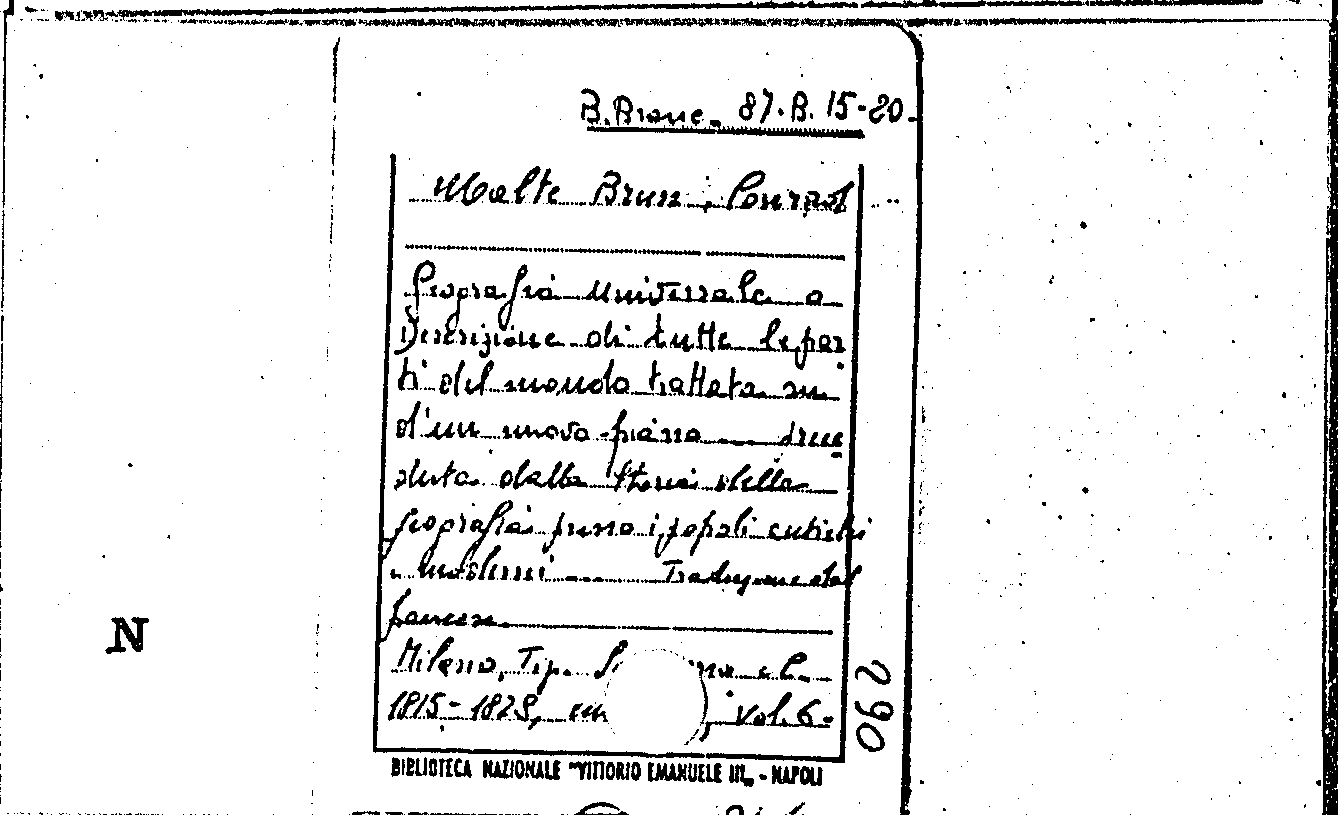 B. Branc. 87.B. 15-20.
Malte Brun, Conrad
Geografia Universale o
Descrizione di tutte le par
ti del mondo trattata su
d'un nuovo piano ... prece
duta dalla Storia della
geografia presso i popoli antichi
e moderni ... Traduzione dal
francese.
Milano, Tip. e C.
1815-1828, vol. 6.
290
N
BIBLIOTECA NAZIONALE "VITTORIO EMANUELE III„ - NAPOLI